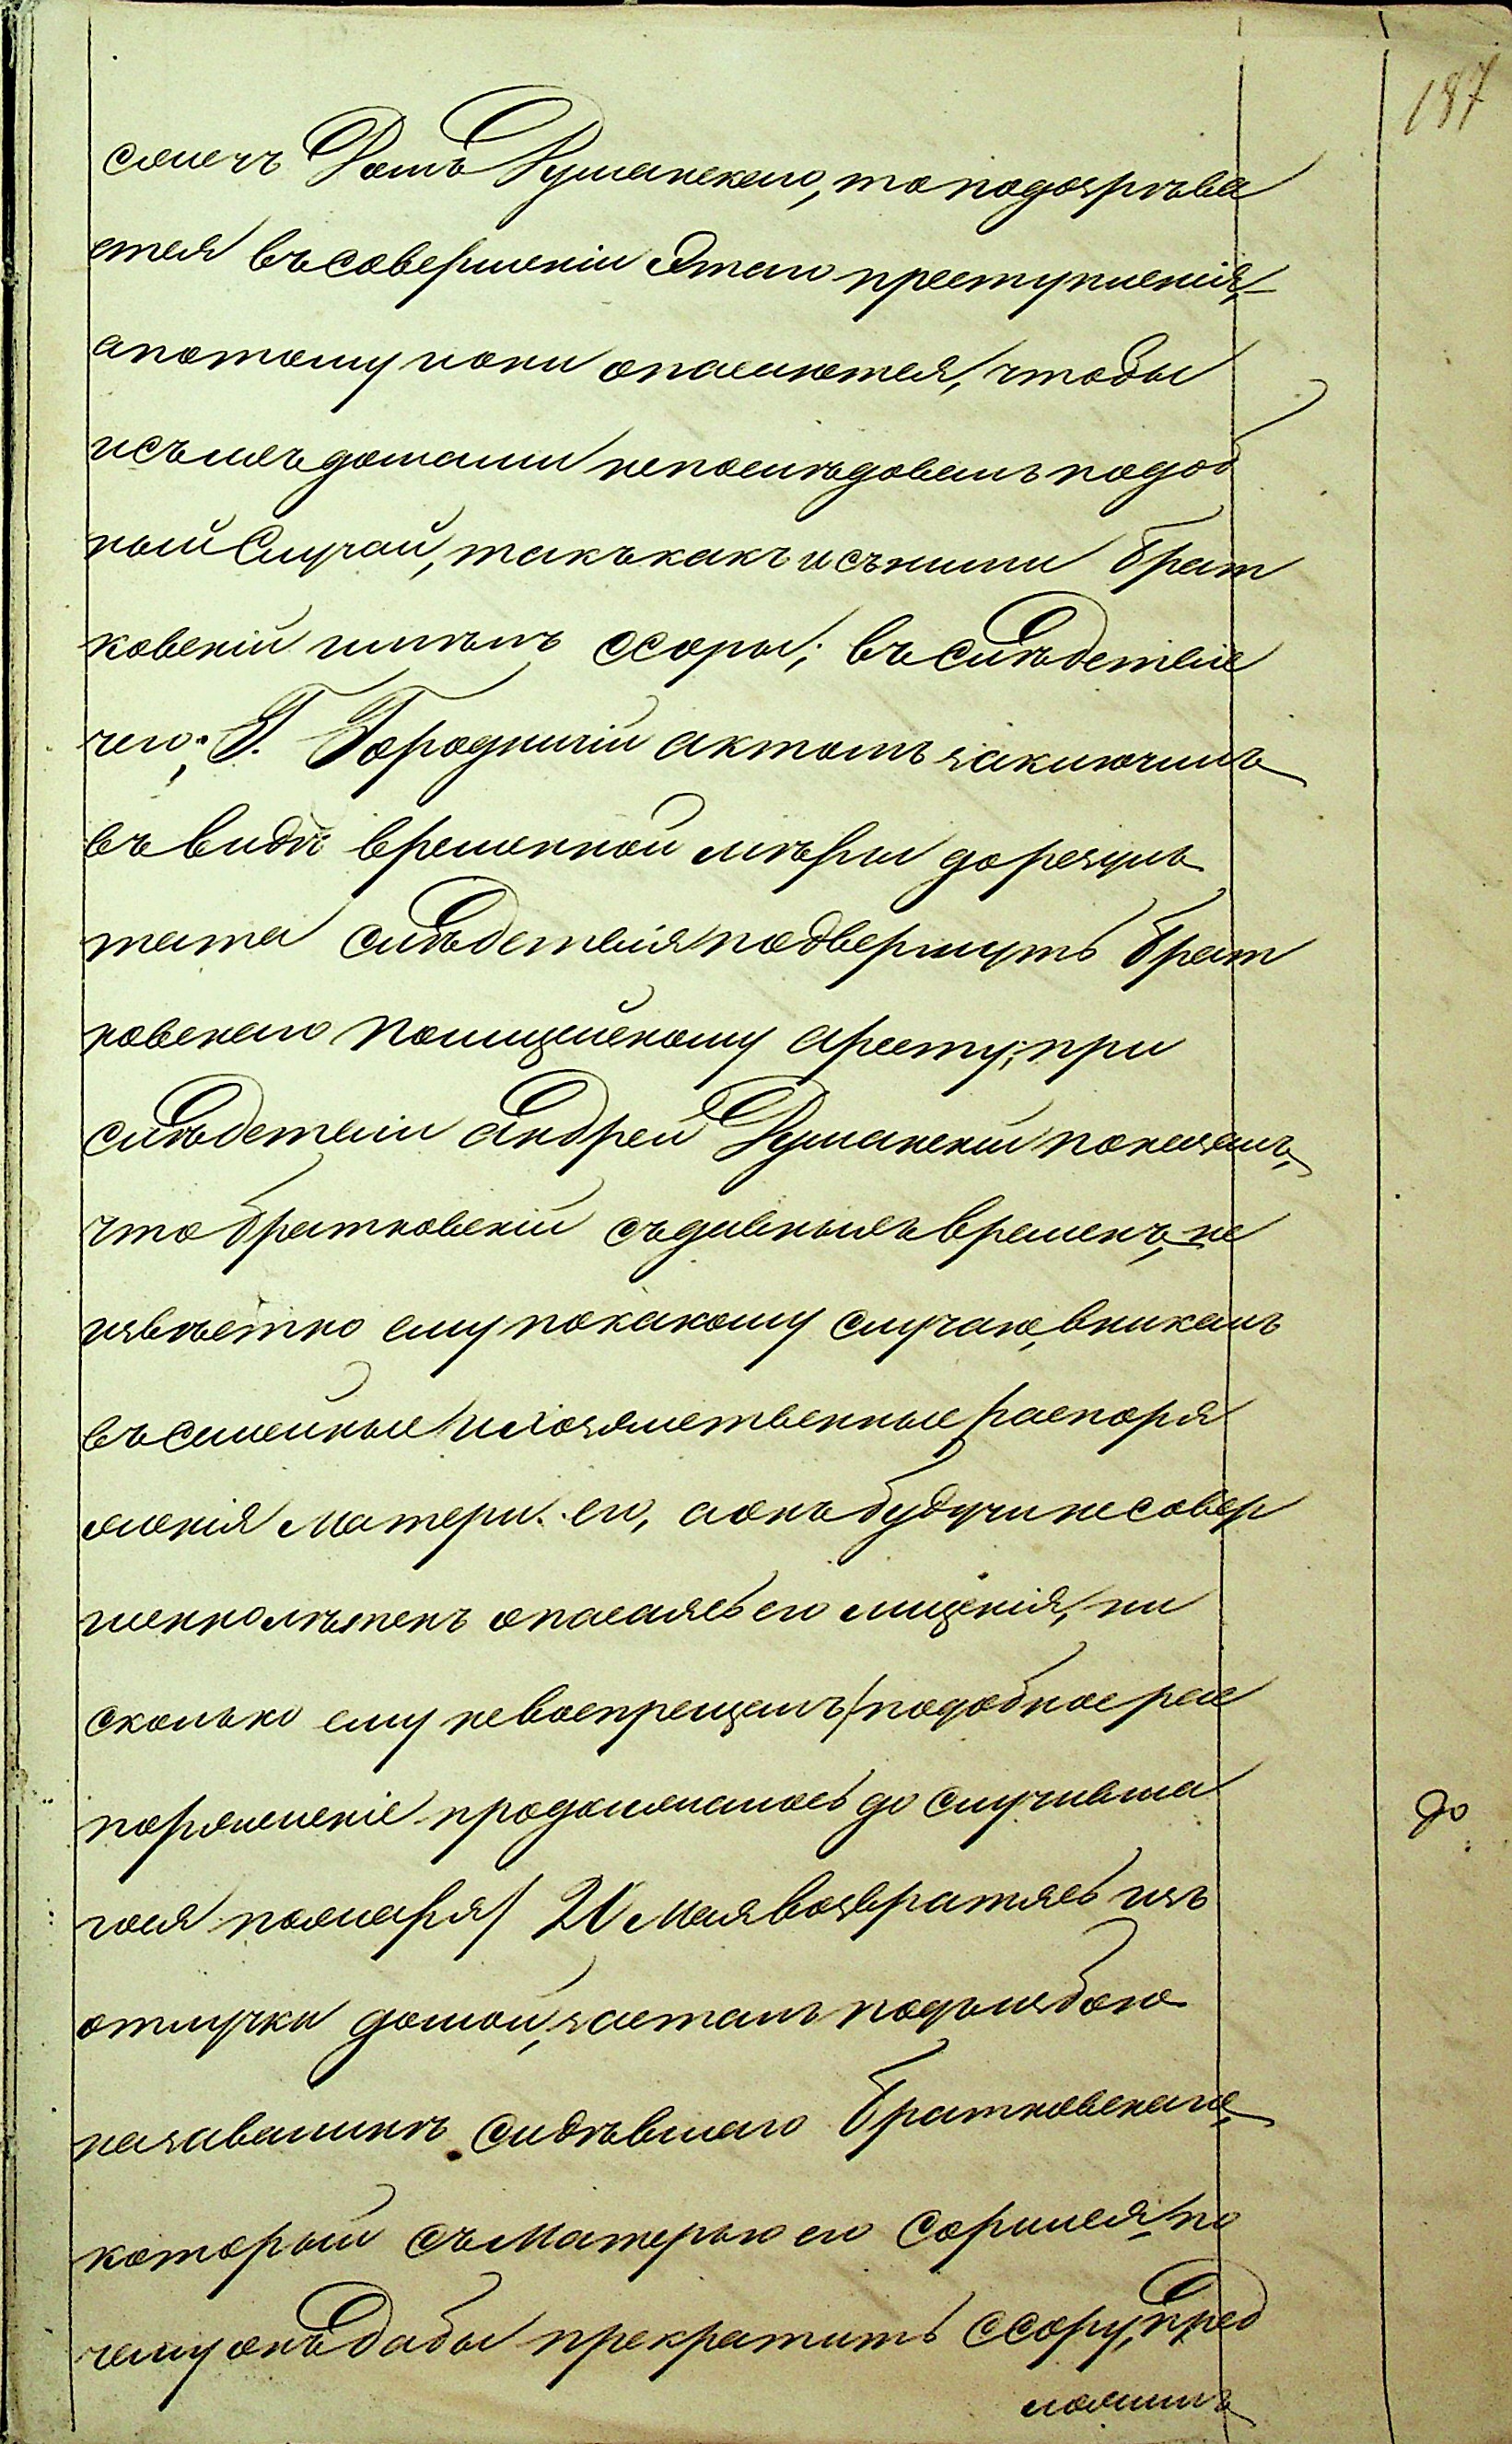 187
сженъ Домъ Думанскаго, то подозрѣва
ется въ совершеніи Этаго преступленія,
а потому и они опасаются, чтобы
и съ ихъ домами непослѣдовалъ подоб
ный Случай, такъ какъ и съ ними Брат
ковскій имѣлъ ссоры; въ Слѣдствіе
чего; Г. Городничій актомъ заключилъ
въ видѣ временной мѣры до резуль
тата Слѣдствія подвергнуть Брат
ковскаго Полицейскому Аресту; при
Слѣдствіи Андрей Думанскій показалъ,
что Братковскій съ давныхъ временъ, не
извѣстно ему по какому случаю, вникалъ
въ семейные и хозяйственные распоря
женія Матери его, а онъ будучи не совер
шеннолѣтенъ опасаясь его мщенія, ни
сколько ему невоспрещалъ, подобное рас
поряженіе продолжалось до случивша
гося пожара, 21 Мая возвратясь изъ
отлучки домой, засталъ подъ избою
на завалинкѣ Сидѣвшаго Братковскаго,
который съ Матерью его Сорился, по
чему онъ Дабы прекратить ссору, Пред
ложилъ
до